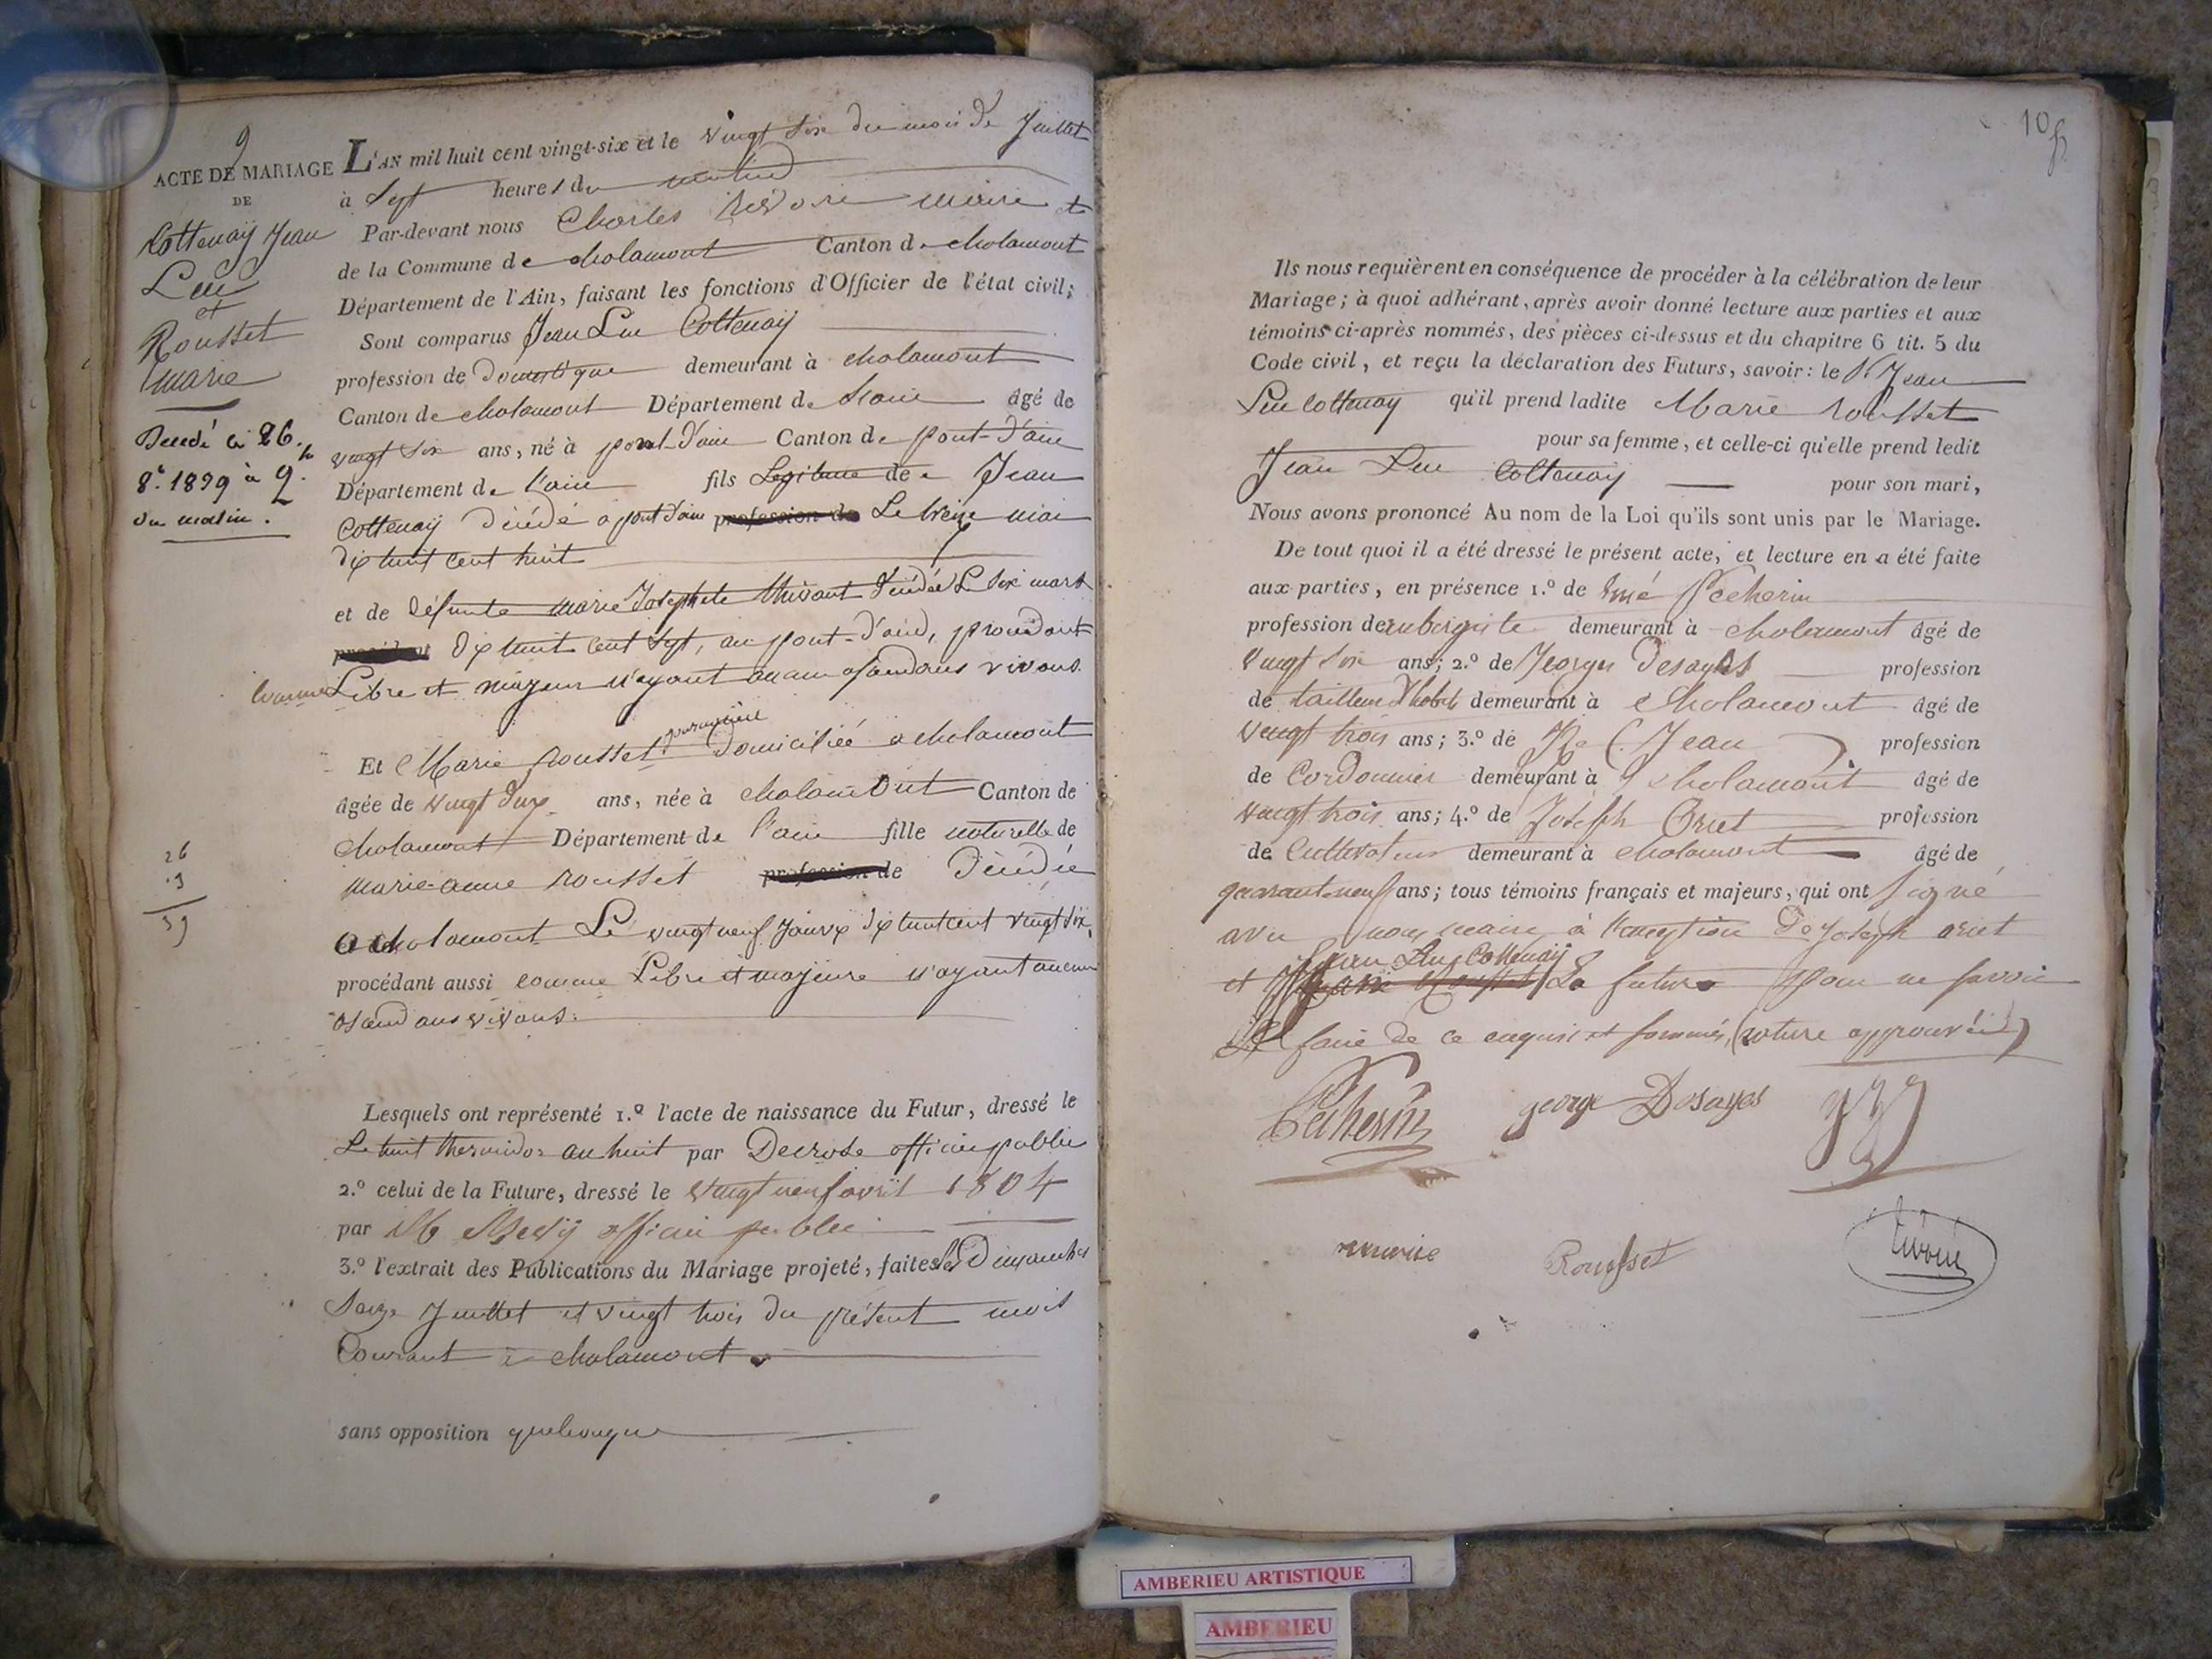 9
ACTE DE MARIAGE
DE
Cottenaÿ Jean
Luc
et
Rousset
Marie
Decedé le 26.
8.e 1839 à 9.h
du matin.
26
39
L'AN mil huit cent vingt-six et le vingt six du mois de Juillet
à Sept heures du matin
Par-devant nous Charles maire
de la Commune de cholamont Canton de cholamont
Département de l'Ain, faisant les fonctions d'Officier de l'état civil;
Sont comparus Jean Luc Cottenaÿ
profession de Domestique demeurant à cholamont
Canton de cholamont Département de l'ain âgé de
vingt six ans, né à pont-d'ain Canton de pont-d'ain
Département de l'ain fils Legitime de Jean
Cottenaÿ décédé a pont d'ain profession de Le treize mai
dix huit cent huit
et de défunte marie Josephete décédée Le six mars
procédant dix huit cent Sept, au pont-d'ain, procedant
comme Libre et majeur n'ayant aucun asendans vivans.
Et Marie Rousset domiciliée a cholamont
âgée de vingt deux ans, née à cholamont Canton de
cholamont Département de l'ain fille naturelle de
marie-anne Rousset profession de Décédée
a cholamont Le vingt neuf Janvx dix huit cent vingt six,
procédant aussi comme Libre et majeure n'ayant aucun
asendans vivans.
Lesquels ont représenté 1.º l'acte de naissance du Futur, dressé le
Le huit thermidor an huit par Decrose officier public
2.º celui de la Future, dressé le vingt neuf avril 1804
par officier public
3.º l'extrait des Publications du Mariage projeté, faites les Dimanches
Seize Juillet et vingt trois du présent mois
Courant à cholamont
sans opposition quelconque
10
Ils nous requièrent en conséquence de procéder à la célébration de leur
Mariage; à quoi adhérant, après avoir donné lecture aux parties et aux
témoins ci-après nommés, des pièces ci-dessus et du chapitre 6 tit. 5 du
Code civil, et reçu la déclaration des Futurs, savoir: le Sr Jean
Luc Cottenay qu'il prend ladite Marie Rousset
pour sa femme, et celle-ci qu'elle prend ledit
Jean Luc Cottenaÿ pour son mari,
Nous avons prononcé Au nom de la Loi qu'ils sont unis par le Mariage.
De tout quoi il a été dressé le présent acte, et lecture en a été faite
aux parties, en présence 1.º de Pécherin
profession de aubergiste demeurant à cholamont âgé de
vingt six ans; 2.º de Georges Desayes profession
de tailleur d'habits demeurant à cholamont âgé de
vingt trois ans; 3.º de Jean profession
de Cordonnier demeurant à cholamont âgé de
vingt trois ans; 4.º de Joseph Orset profession
de Cultivateur demeurant à cholamont âgé de
quarante neuf ans; tous témoins français et majeurs, qui ont signé
avec nous maire, à l'exception de Joseph orset
Jean Luc Cottenaÿ
et Marie Rousset Le futur pour ne savoir
Le faire de ce enquis et sommés, (roture approuvée)
Pécherin george Desayes
marie Rousset
AMBERIEU ARTISTIQUE
AMBERIEU